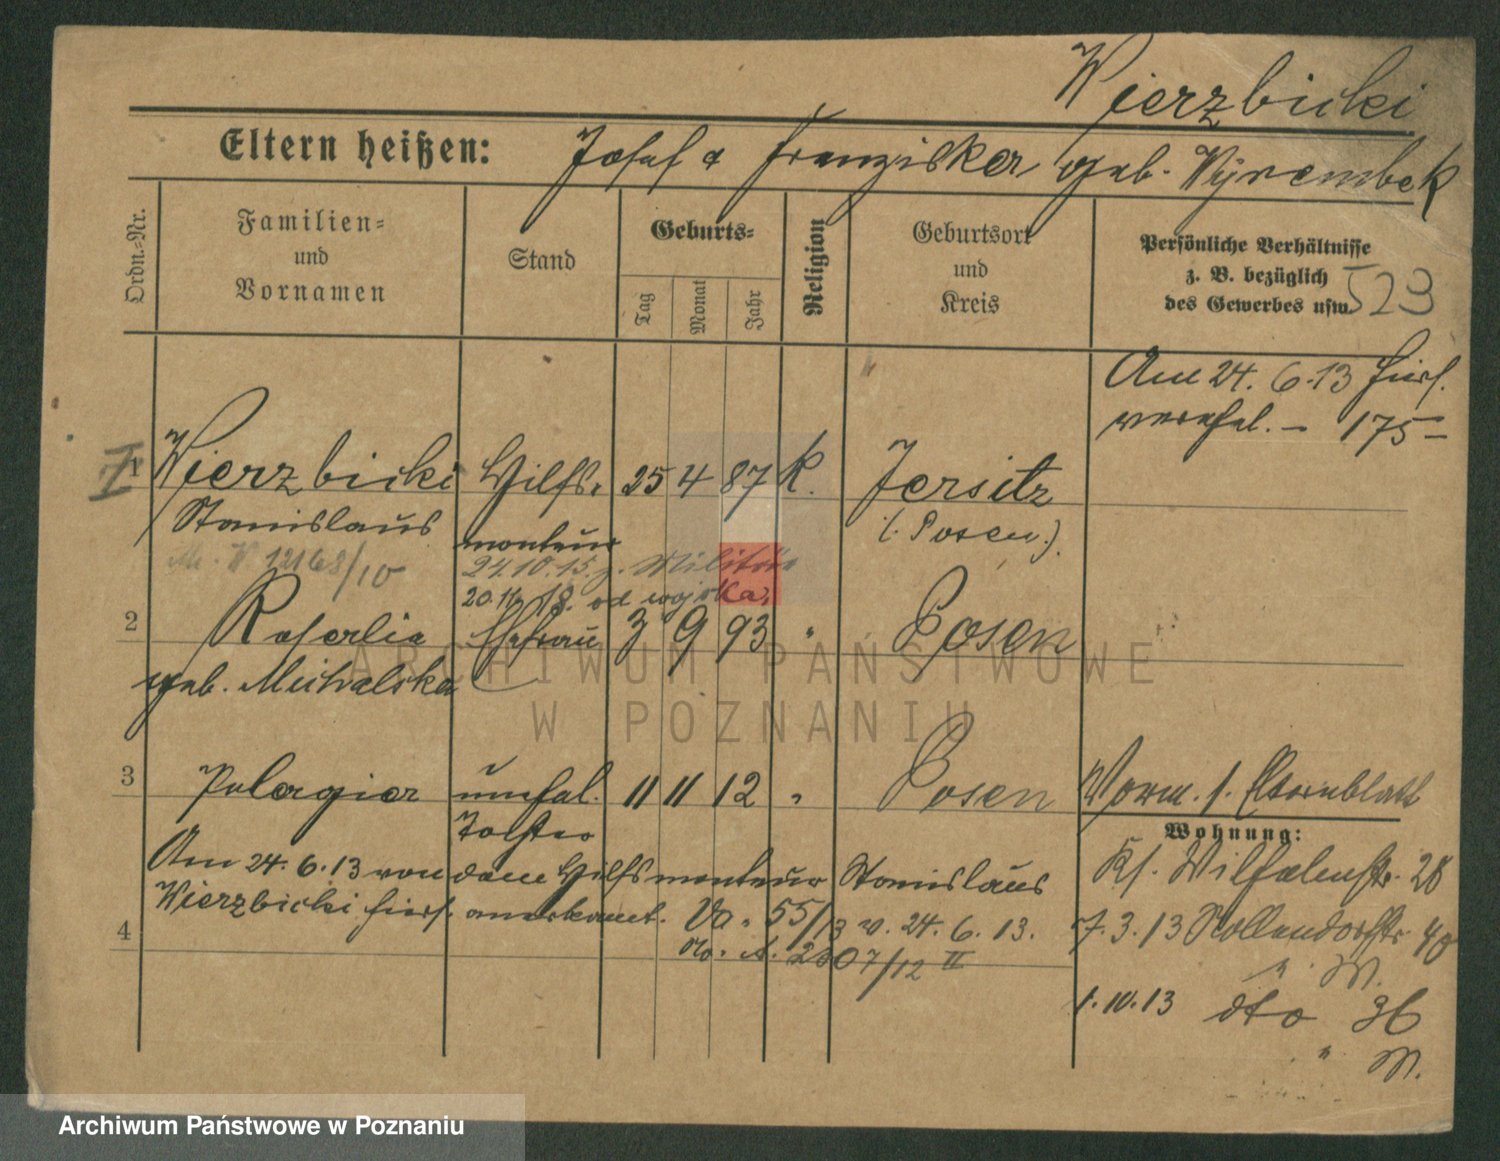 Wierzbicki
Eltern heißen: Josef & Franziska geb. Wyrembek
Ordn.-Nr.
Familien- und Vornamen
Stand
Geburts-
Tag
Monat
Jahr
Religion
Geburtsort und Kreis
Persönliche Verhältnisse z. B. bezüglich des Gewerbes usw.
523
Am 24. 6. 13 hier
verehel. - 175 -
I
1 Wierzbicki Hilfs- 25 4 87 K. Jersitz
Stanislaus monteur (: Posen :)
12168/10 24.10.15. z. Militär
20.11.18. od wojska
2 Ehefrau 3 9 93 " Posen
geb. Michalska
3 Pelagia unehel. 11 11 12 " Posen
Tochter
Vorm. s. Elternblatt
Wohnung:
Am 24. 6. 13 von dem Hilfsmonteur Stanislaus
Wierzbicki hier anerkannt. 55/13 v. 24. 6. 13.
4
2807/12 II
Kl. Wilhelmstr. 28
7. 3. 13 Nollendorfstr. 40
" M.
1. 10. 13 dto 36
" M.
ARCHIWUM PAŃSTWOWE
W POZNANIU
Archiwum Państwowe w Poznaniu